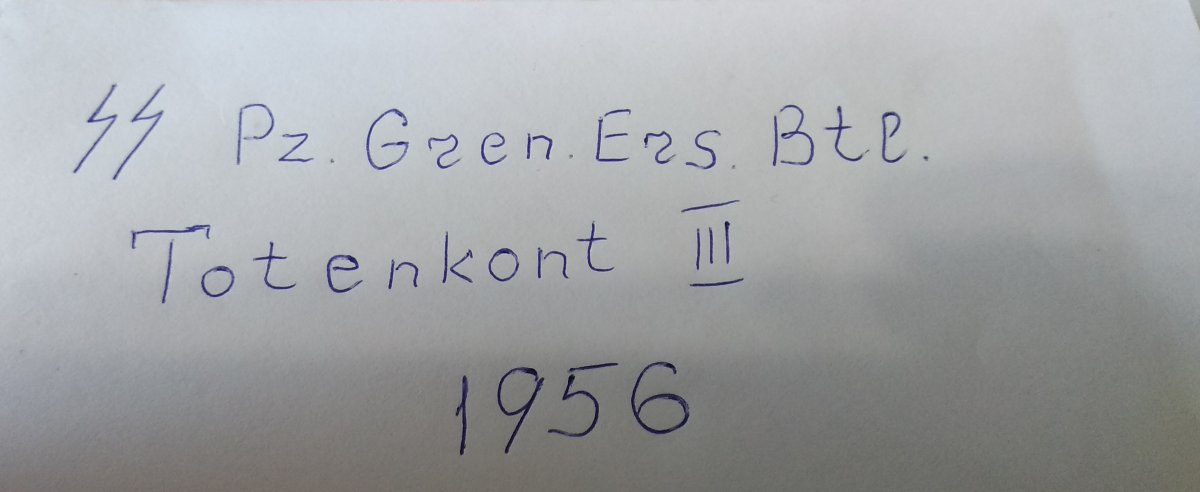 ᛋᛋ Pz. Gren. Ers. Btl.
Totenkont III
1956